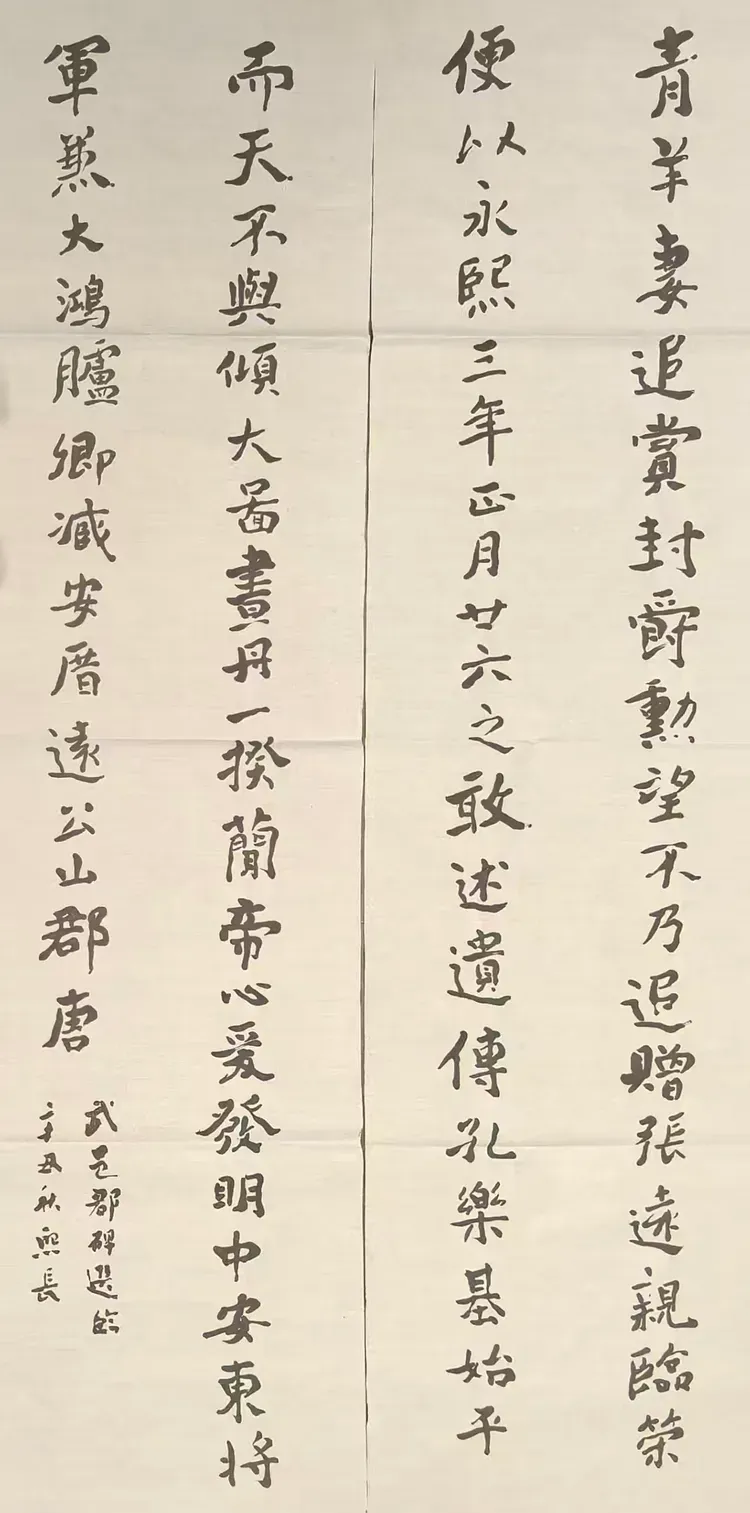 青羊妻追賞封爵勲望不乃追贈張遠親臨榮
便以永熙三年正月廿六之敢述遺傳孔樂基始平
而天不與傾大啚晝丹一揆蘭帝心爰發明中安東將
軍兼大鴻臚卿减安厝遠公山郡唐
武邑郡碑選臨
辛丑秋熙長